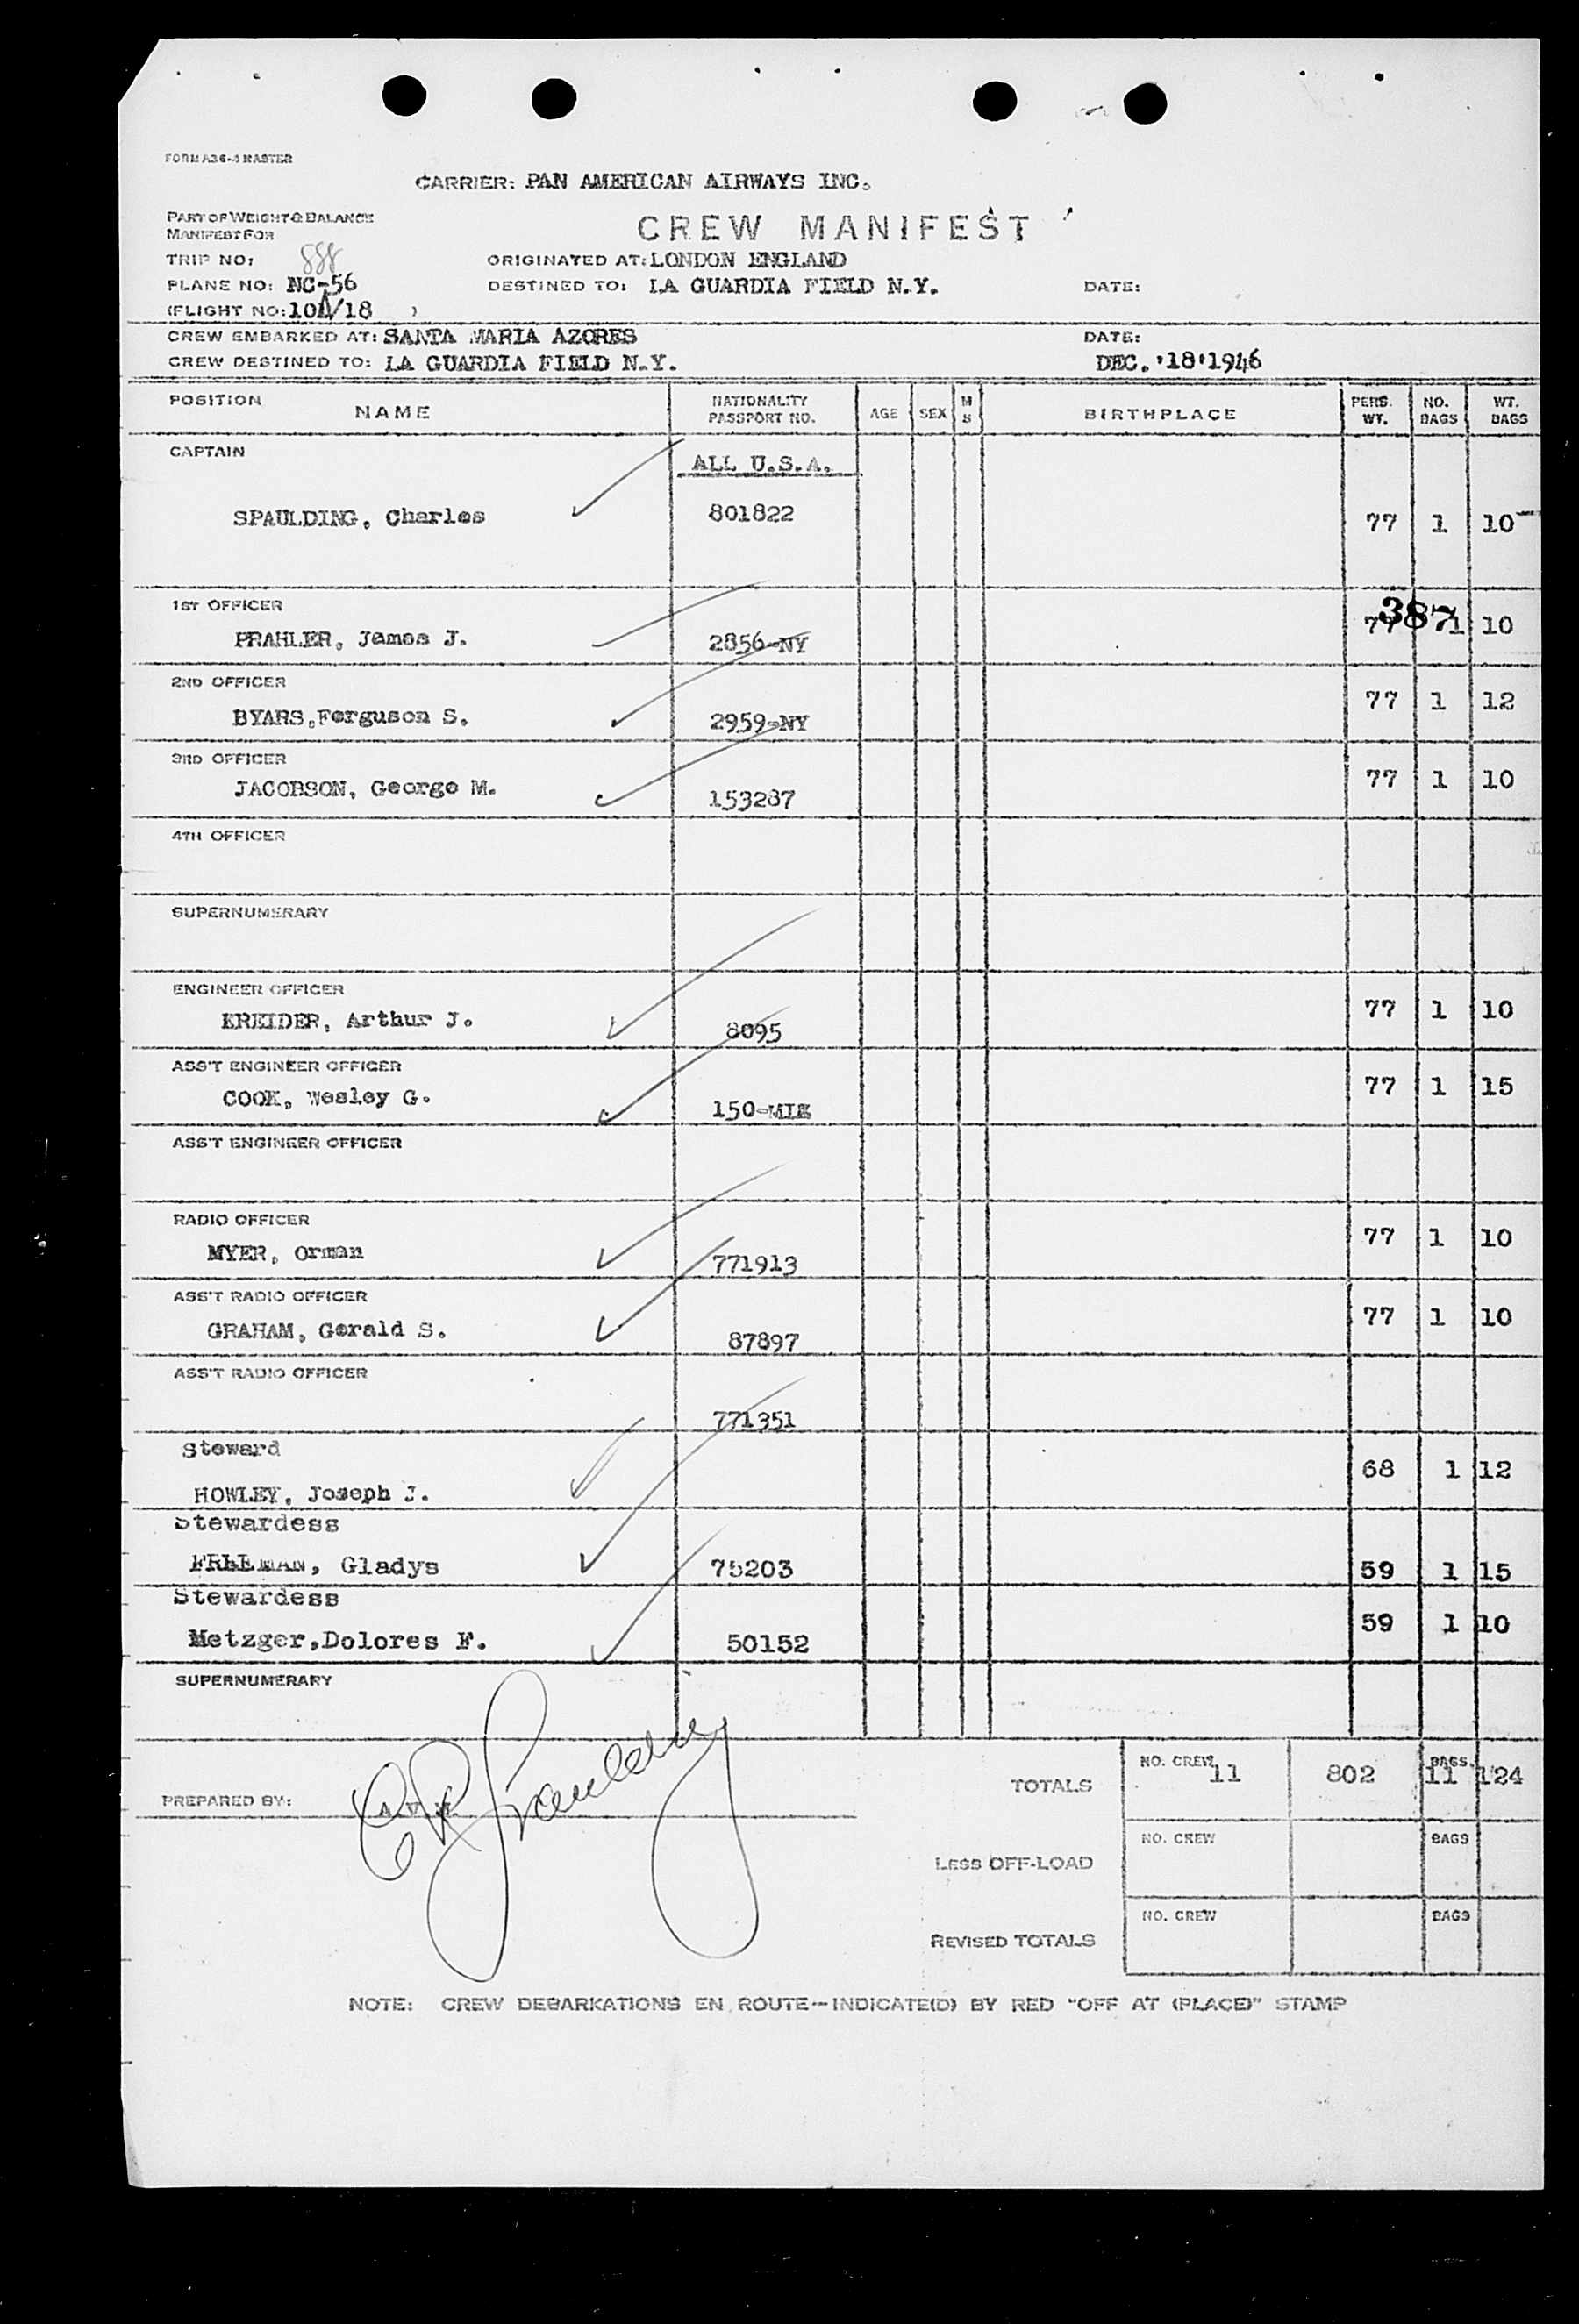 FORM A36-4 MASTER
CARRIER: PAN AMERICAN AIRWAYS INC.
PART OF WEIGHT & BALANCE
MANIFEST FOR
CREW MANIFEST
TRIP NO: 888
ORIGINATED AT: LONDON ENGLAND
PLANE NO: NC-56
DESTINED TO: LA GUARDIA FIELD N.Y.
DATE:
(FLIGHT NO: 101/18 )
CREW EMBARKED AT: SANTA MARIA AZORES
DATE:
CREW DESTINED TO: LA GUARDIA FIELD N.Y.
DEC. '18'1946
POSITION NAME NATIONALITY PASSPORT NO. AGE SEX M S BIRTHPLACE PERS. WT. NO. BAGS WT. BAGS
CAPTAIN
ALL U.S.A.
SPAULDING, Charles 801822 77 1 10
1ST OFFICER
387
PRAHLER, James J. 2856-NY 77 1 10
2ND OFFICER
BYARS, Ferguson S. 2959-NY 77 1 12
3RD OFFICER
JACOBSON, George M. 153287 77 1 10
4TH OFFICER
SUPERNUMERARY
ENGINEER OFFICER
KREIDER, Arthur J. 8095 77 1 10
ASS'T ENGINEER OFFICER
COOK, Wesley G. 150-MIA 77 1 15
ASS'T ENGINEER OFFICER
RADIO OFFICER
MYER, Orman 771913 77 1 10
ASS'T RADIO OFFICER
GRAHAM, Gerald S. 87897 77 1 10
ASS'T RADIO OFFICER
771351
Steward
HOWLEY, Joseph J. 68 1 12
Stewardess
FREEMAN, Gladys 75203 59 1 15
Stewardess
Metzger, Dolores F. 50152 59 1 10
SUPERNUMERARY
TOTALS NO. CREW 11 802 BAGS 11 124
PREPARED BY: C R Spaulding
LESS OFF-LOAD NO. CREW BAGS
REVISED TOTALS NO. CREW BAGS
NOTE: CREW DEBARKATIONS EN ROUTE—INDICATE(D) BY RED "OFF AT (PLACE)" STAMP